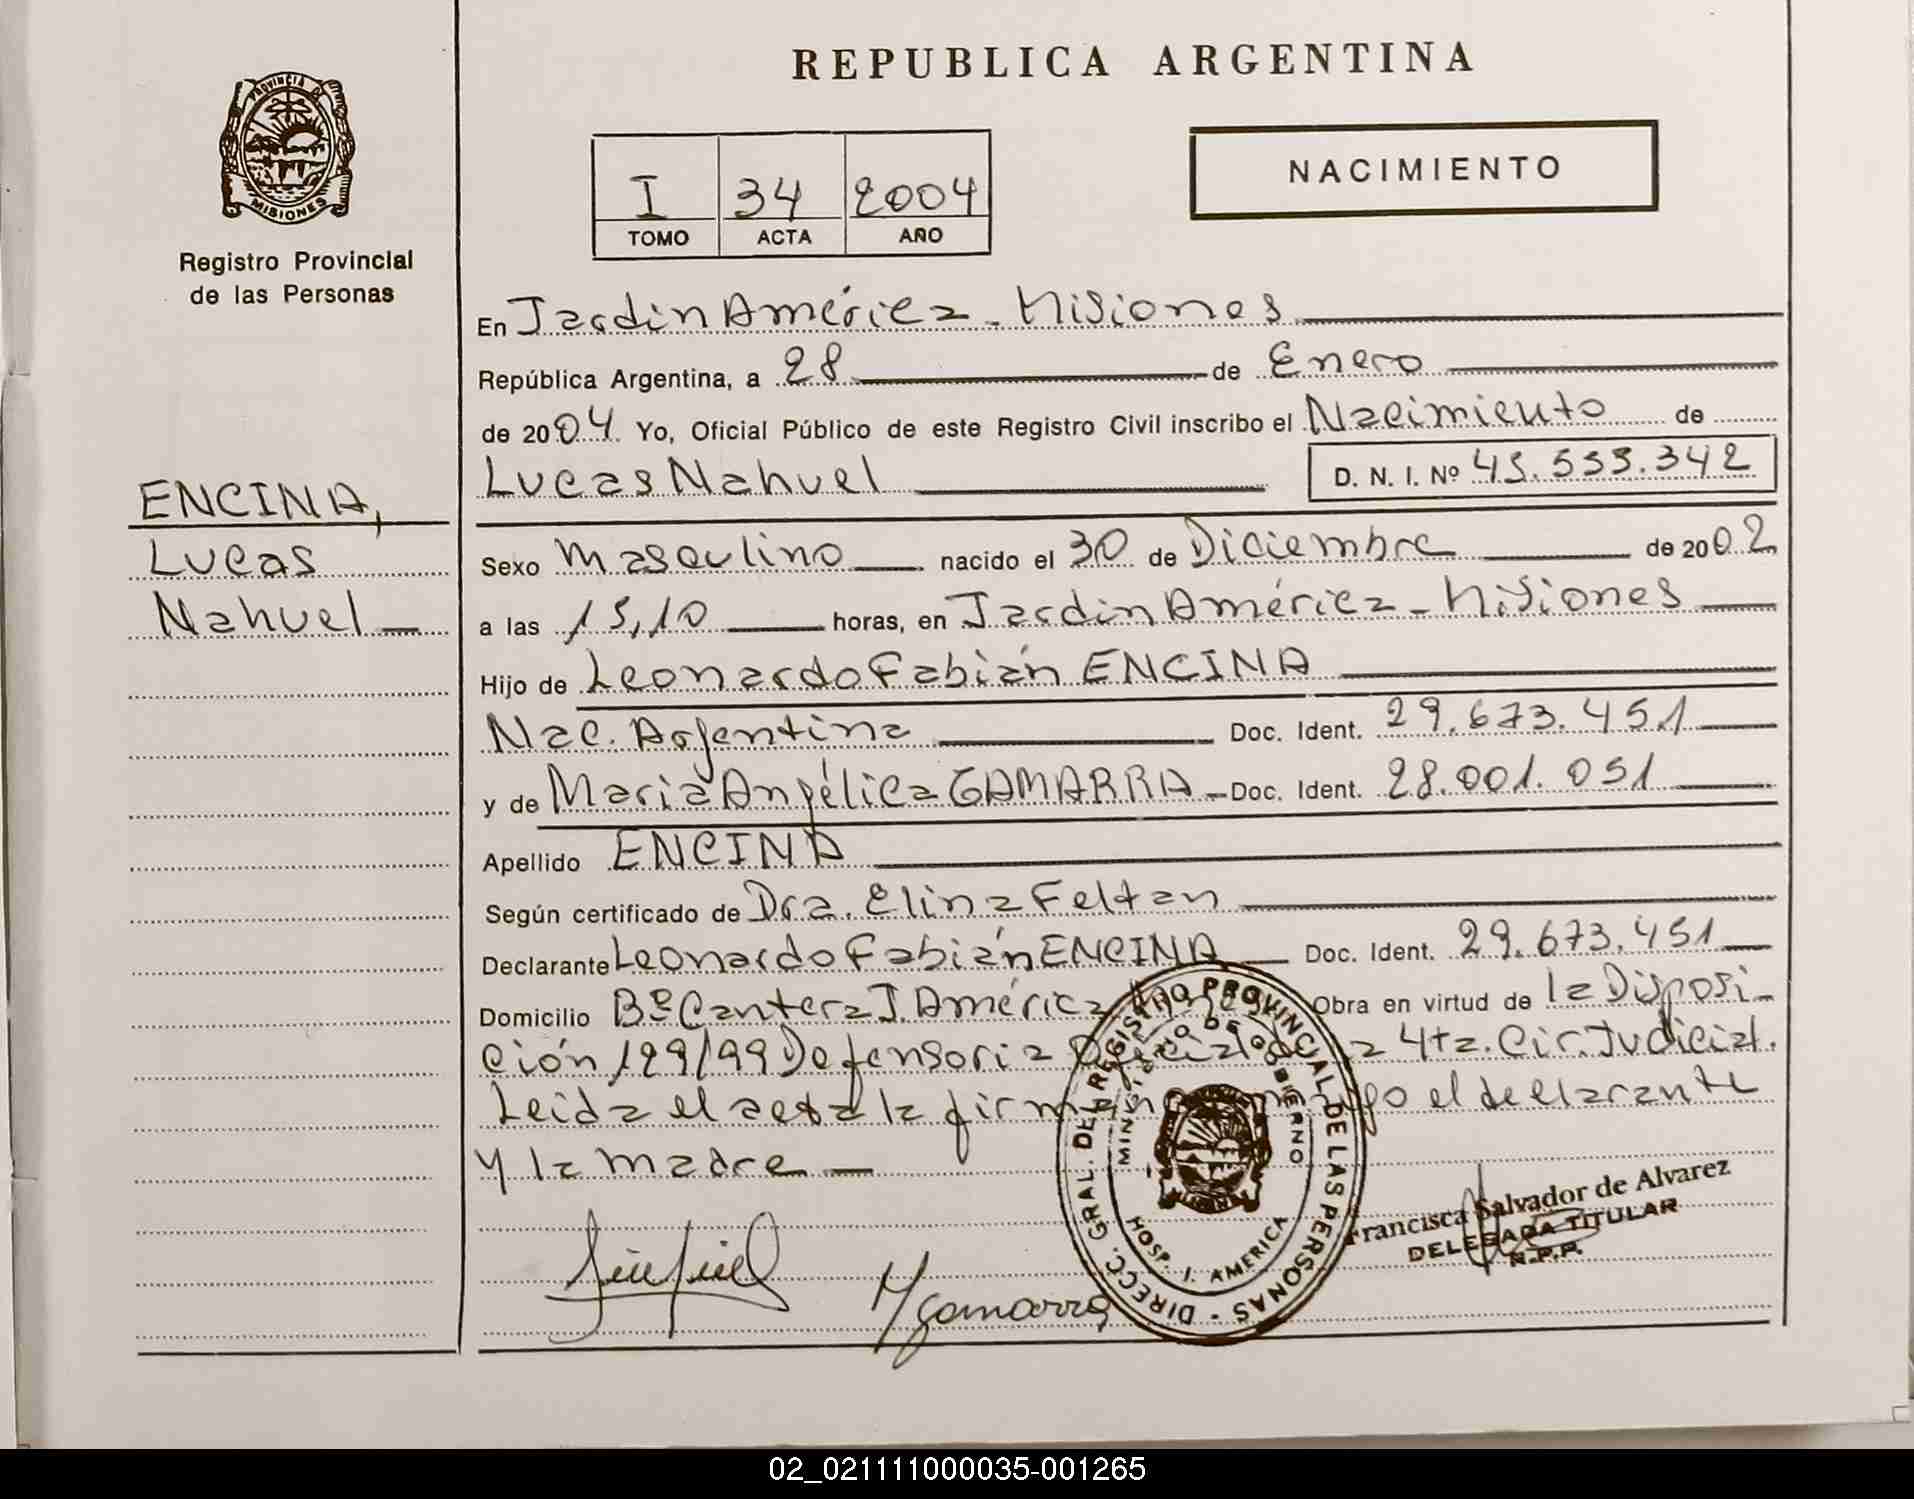 REPUBLICA ARGENTINA
PROVINCIA DE MISIONES
Registro Provincial
de las Personas
I 34 2004
TOMO ACTA AÑO
NACIMIENTO
En Jardín América - Misiones
República Argentina, a 28 de Enero
de 2004 Yo, Oficial Público de este Registro Civil inscribo el Nacimiento de
Lucas Nahuel D. N. I. Nº 45.553.342
ENCINA,
Lucas
Nahuel
Sexo Masculino nacido el 30 de Diciembre de 2002
a las 15,10 horas, en Jardín América - Misiones
Hijo de Leonardo Fabián ENCINA
Nac. Argentina Doc. Ident. 29.673.451
y de María Angélica GAMARRA Doc. Ident. 28.001.051
Apellido ENCINA
Según certificado de Dra. Elina Feltan
Declarante Leonardo Fabián ENCINA Doc. Ident. 29.673.451
Domicilio Bº Cantera J. América Obra en virtud de la Disposi-
ción 129/99 Defensoria 4ta. Cir. Judicial.
Leida el acta la firman el declarante
y la madre
Francisca Salvador de Alvarez
DELEGADA TITULAR
R.P.P.
DIRECC. GRAL. DEL REGISTRO PROVINCIAL DE LAS PERSONAS
MINISTERIO DE GOBIERNO
HOSP. J. AMERICA
Mgamarra
02_021111000035-001265